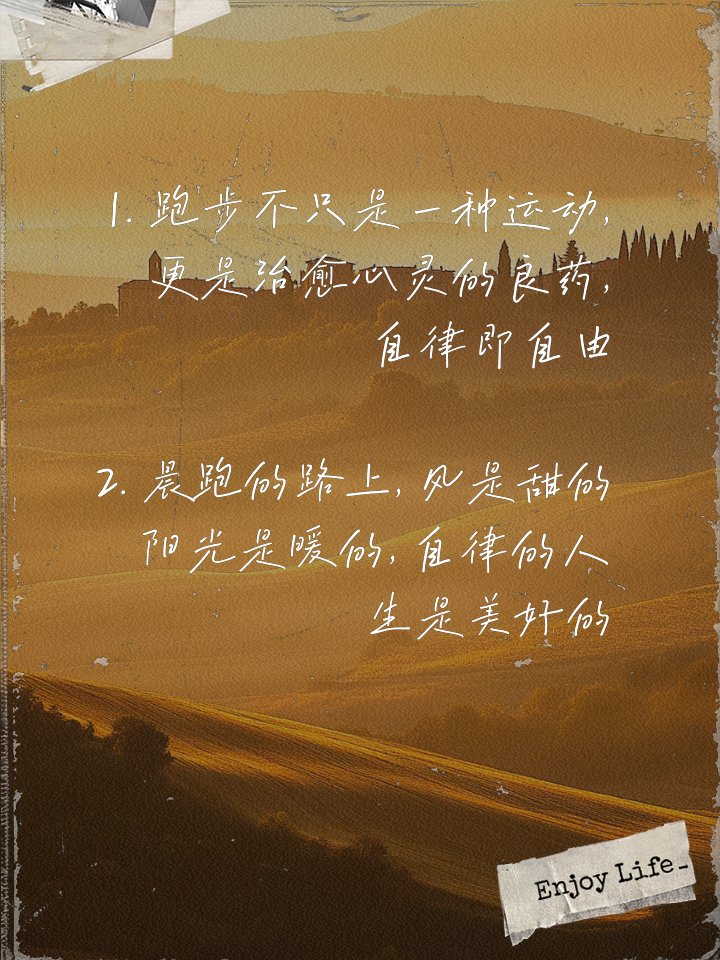 1. 跑步不只是一种运动,
更是治愈心灵的良药,
自律即自由
2. 晨跑的路上, 风是甜的
阳光是暖的, 自律的人
生是美好的
Enjoy Life-